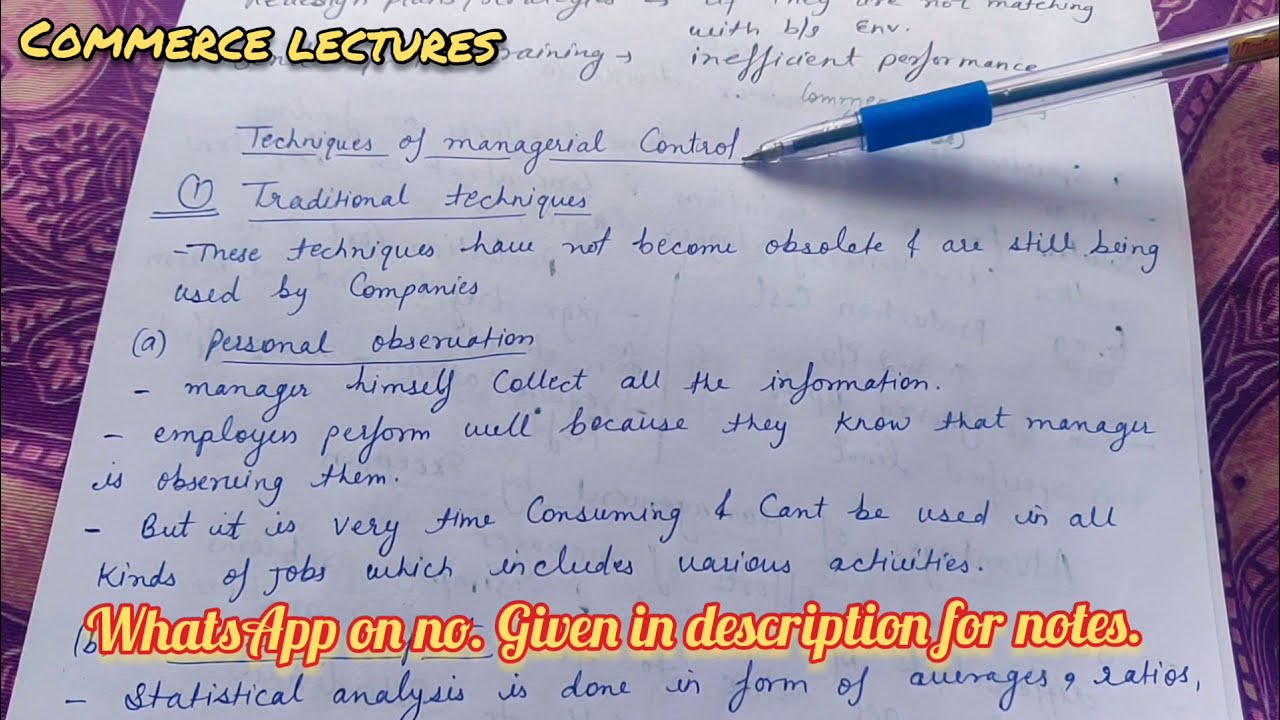 Redesign plans/strategies → if they are not matching
COMMERCE LECTURES
with b/s Env.
raining → inefficient performance
Techniques of managerial Control
① Traditional techniques
- These techniques have not become obsolete & are still being
used by Companies
(a) Personal observation
- manager himself Collect all the information.
- employees perform well because they know that manager
is observing them.
- But it is very time Consuming & Cant be used in all
kinds of jobs which includes various activities.
WhatsApp on no. Given in description for notes.
(b
- Statistical analysis is done in form of averages, ratios,